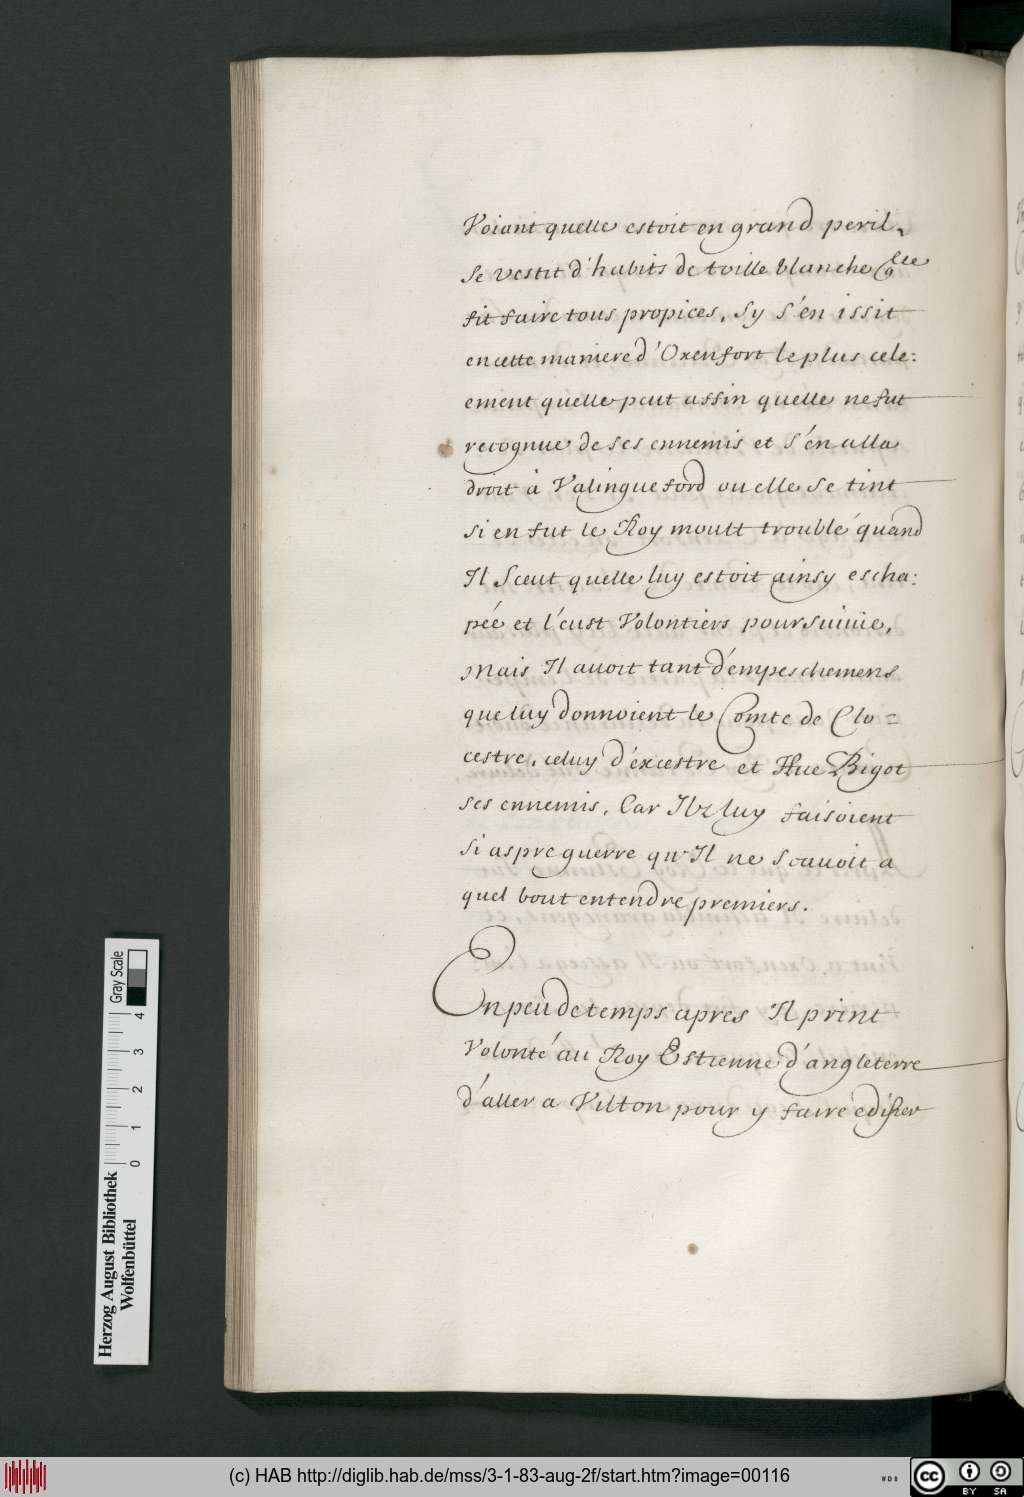 Voiant quelle estoit en grand peril,
Se vestit d'habits de toille blanche qlle
fit faire tous propices, Sy S'en issit
en cette maniere d'Oxenfort le plus cele:
ement quelle peut affin quelle ne fut
recognue de ses ennemis et S'en alla
droit à Valingueford ou elle Se tint
si en fut le Roy moult troublé quand
Il Sceut quelle luy estoit ainsy escha:
pée et l'eust Volontiers poursuiuie,
mais Il auoit tant d'empeschemens
que luy donnoient le Comte de Clo=
cestre, celuy d'excestre et Hue Bigot
ses ennemis, Car Ilz luy faisoient
si aspre guerre qu'Il ne Scauoit a
quel bout entendre premiers.
En peu de temps apres Il print
Volonté au Roy Estienne d'angleterre
d'aller a Vilton pour y faire edifier
Herzog August Bibliothek
Wolfenbüttel
0 1 2 3 4
Gray Scale
(c) HAB http://diglib.hab.de/mss/3-1-83-aug-2f/start.htm?image=00116
WDB
CC BY SA